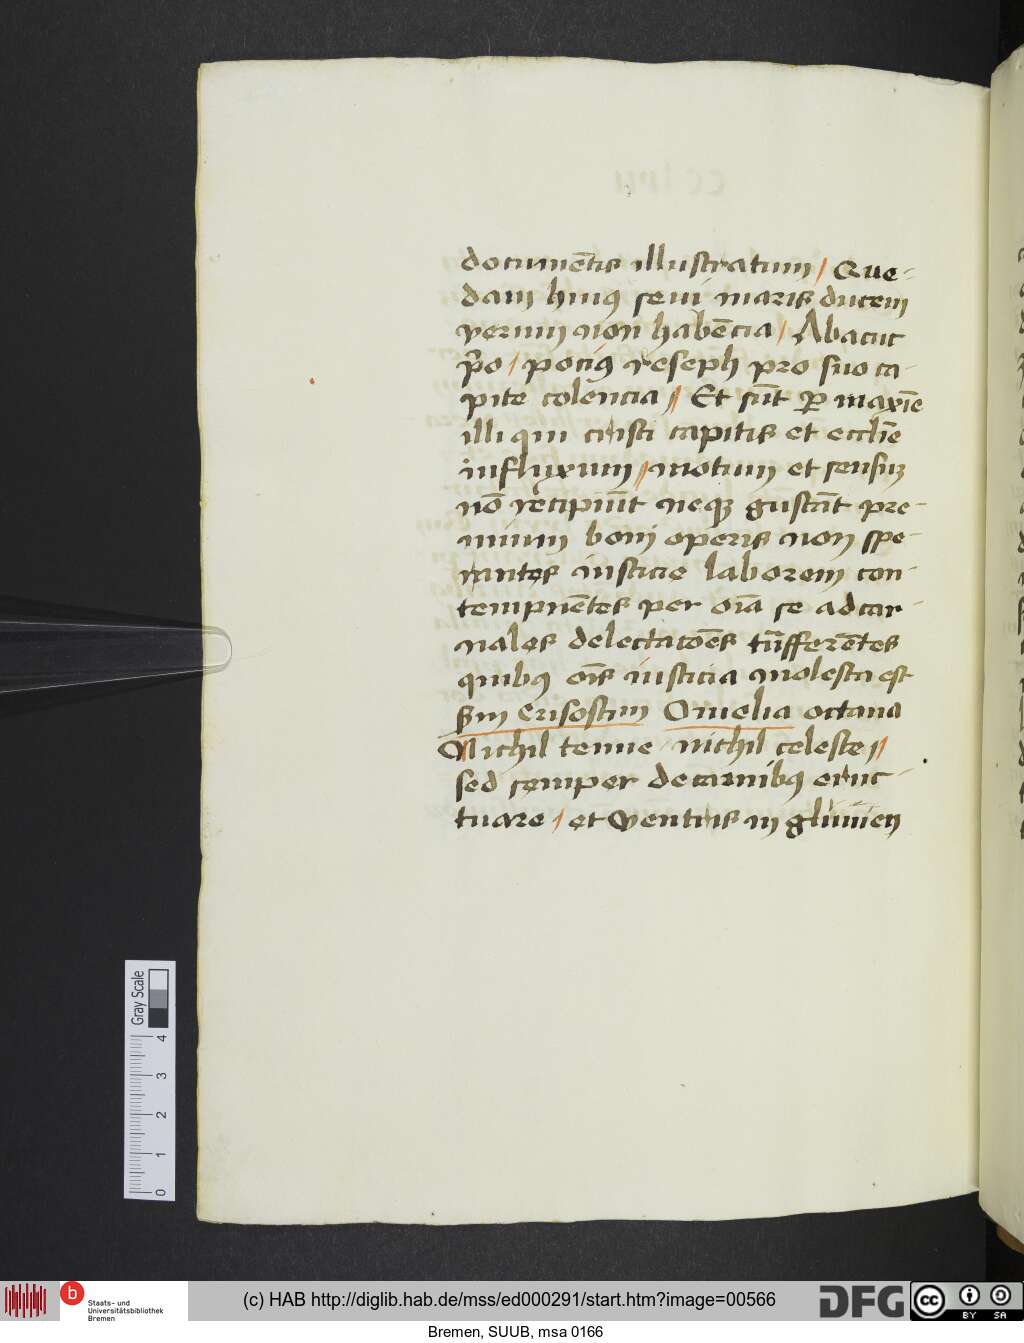 documētis illustratum / Que-
dam huiꝰ seui maris ducem
verum non habēcia / Abacuc
p̄o / pociꝰ reseph pro suo ca-
pite colencia // Et sūt ꝑ maxīe
illi qui cristi capitis et eccl̄ie
influxum // motum et sensuꝫ
nō recipiūt neqꝫ gustāt pre-
mium boni operis non spe-
rantes iusticie laborem con-
tempnētes per oīa se ad car-
nales delectacōēs trāsferētes
quibꝰ oīs iusticia molesta est
sm Crisostim Omelia octaua
Nichil tenue nichil celeste //
sed semper de carnibꝰ eruc-
tuare / et ventris in
Gray Scale
4
3
2
1
0
b
Staats- und
Universitätsbibliothek
Bremen
(c) HAB http://diglib.hab.de/mss/ed000291/start.htm?image=00566
DFG
cc
BY SA
Bremen, SUUB, msa 0166